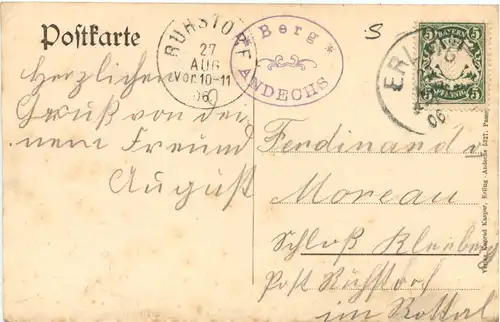 Postkarte
RUHSTORF
27
AUG
Vor 10-11
06
* Berg *
ANDECHS
S
ERLI
06
BAYERN
5 5
Herzlichen
Gruß von dei-
nem Freund
August
Ferdinand v.
Moreau
Schloß Kleeberg
Post Ruhstorf
im Rottal
Verlag Konrad Kasper, Erling-Andechs